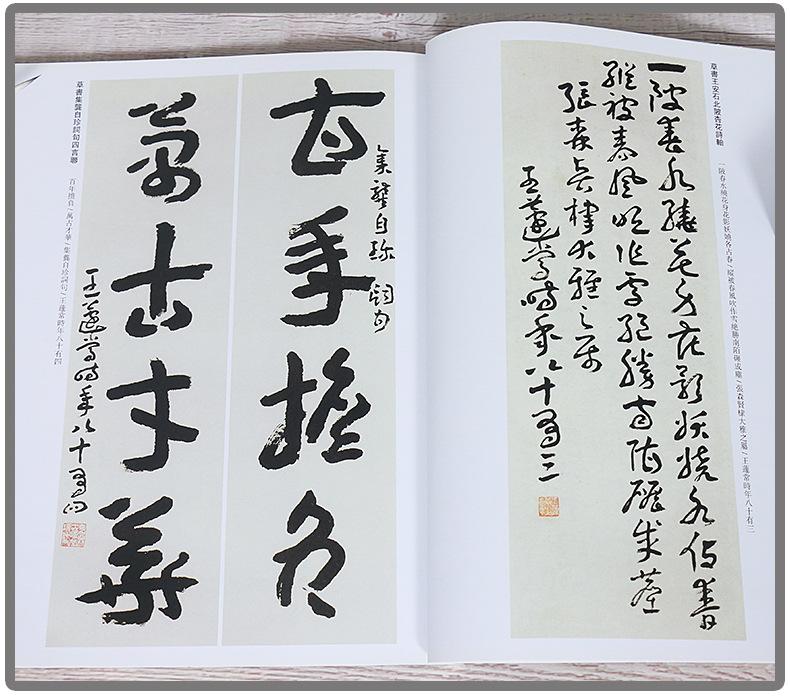 草書王安石北陂杏花詩軸
一陂春水繞花身花影妖嬈各占春/縱被春風吹作雪絕勝南陌碾成塵/張森賢棣大雅之屬/王蘧常時年八十有三
一陂春水繞花身花影妖嬈各占春
縱被春風吹作雪絕勝南陌碾成塵
張森賢棣大雅之屬
王蘧常時年八十有三
集龔自珍詞句
百年擔負
萬古才華
王蘧常時年八十有四
百年擔負/萬古才華/集龔自珍詞句/王蘧常時年八十有四
草書集龔自珍詞句四言聯